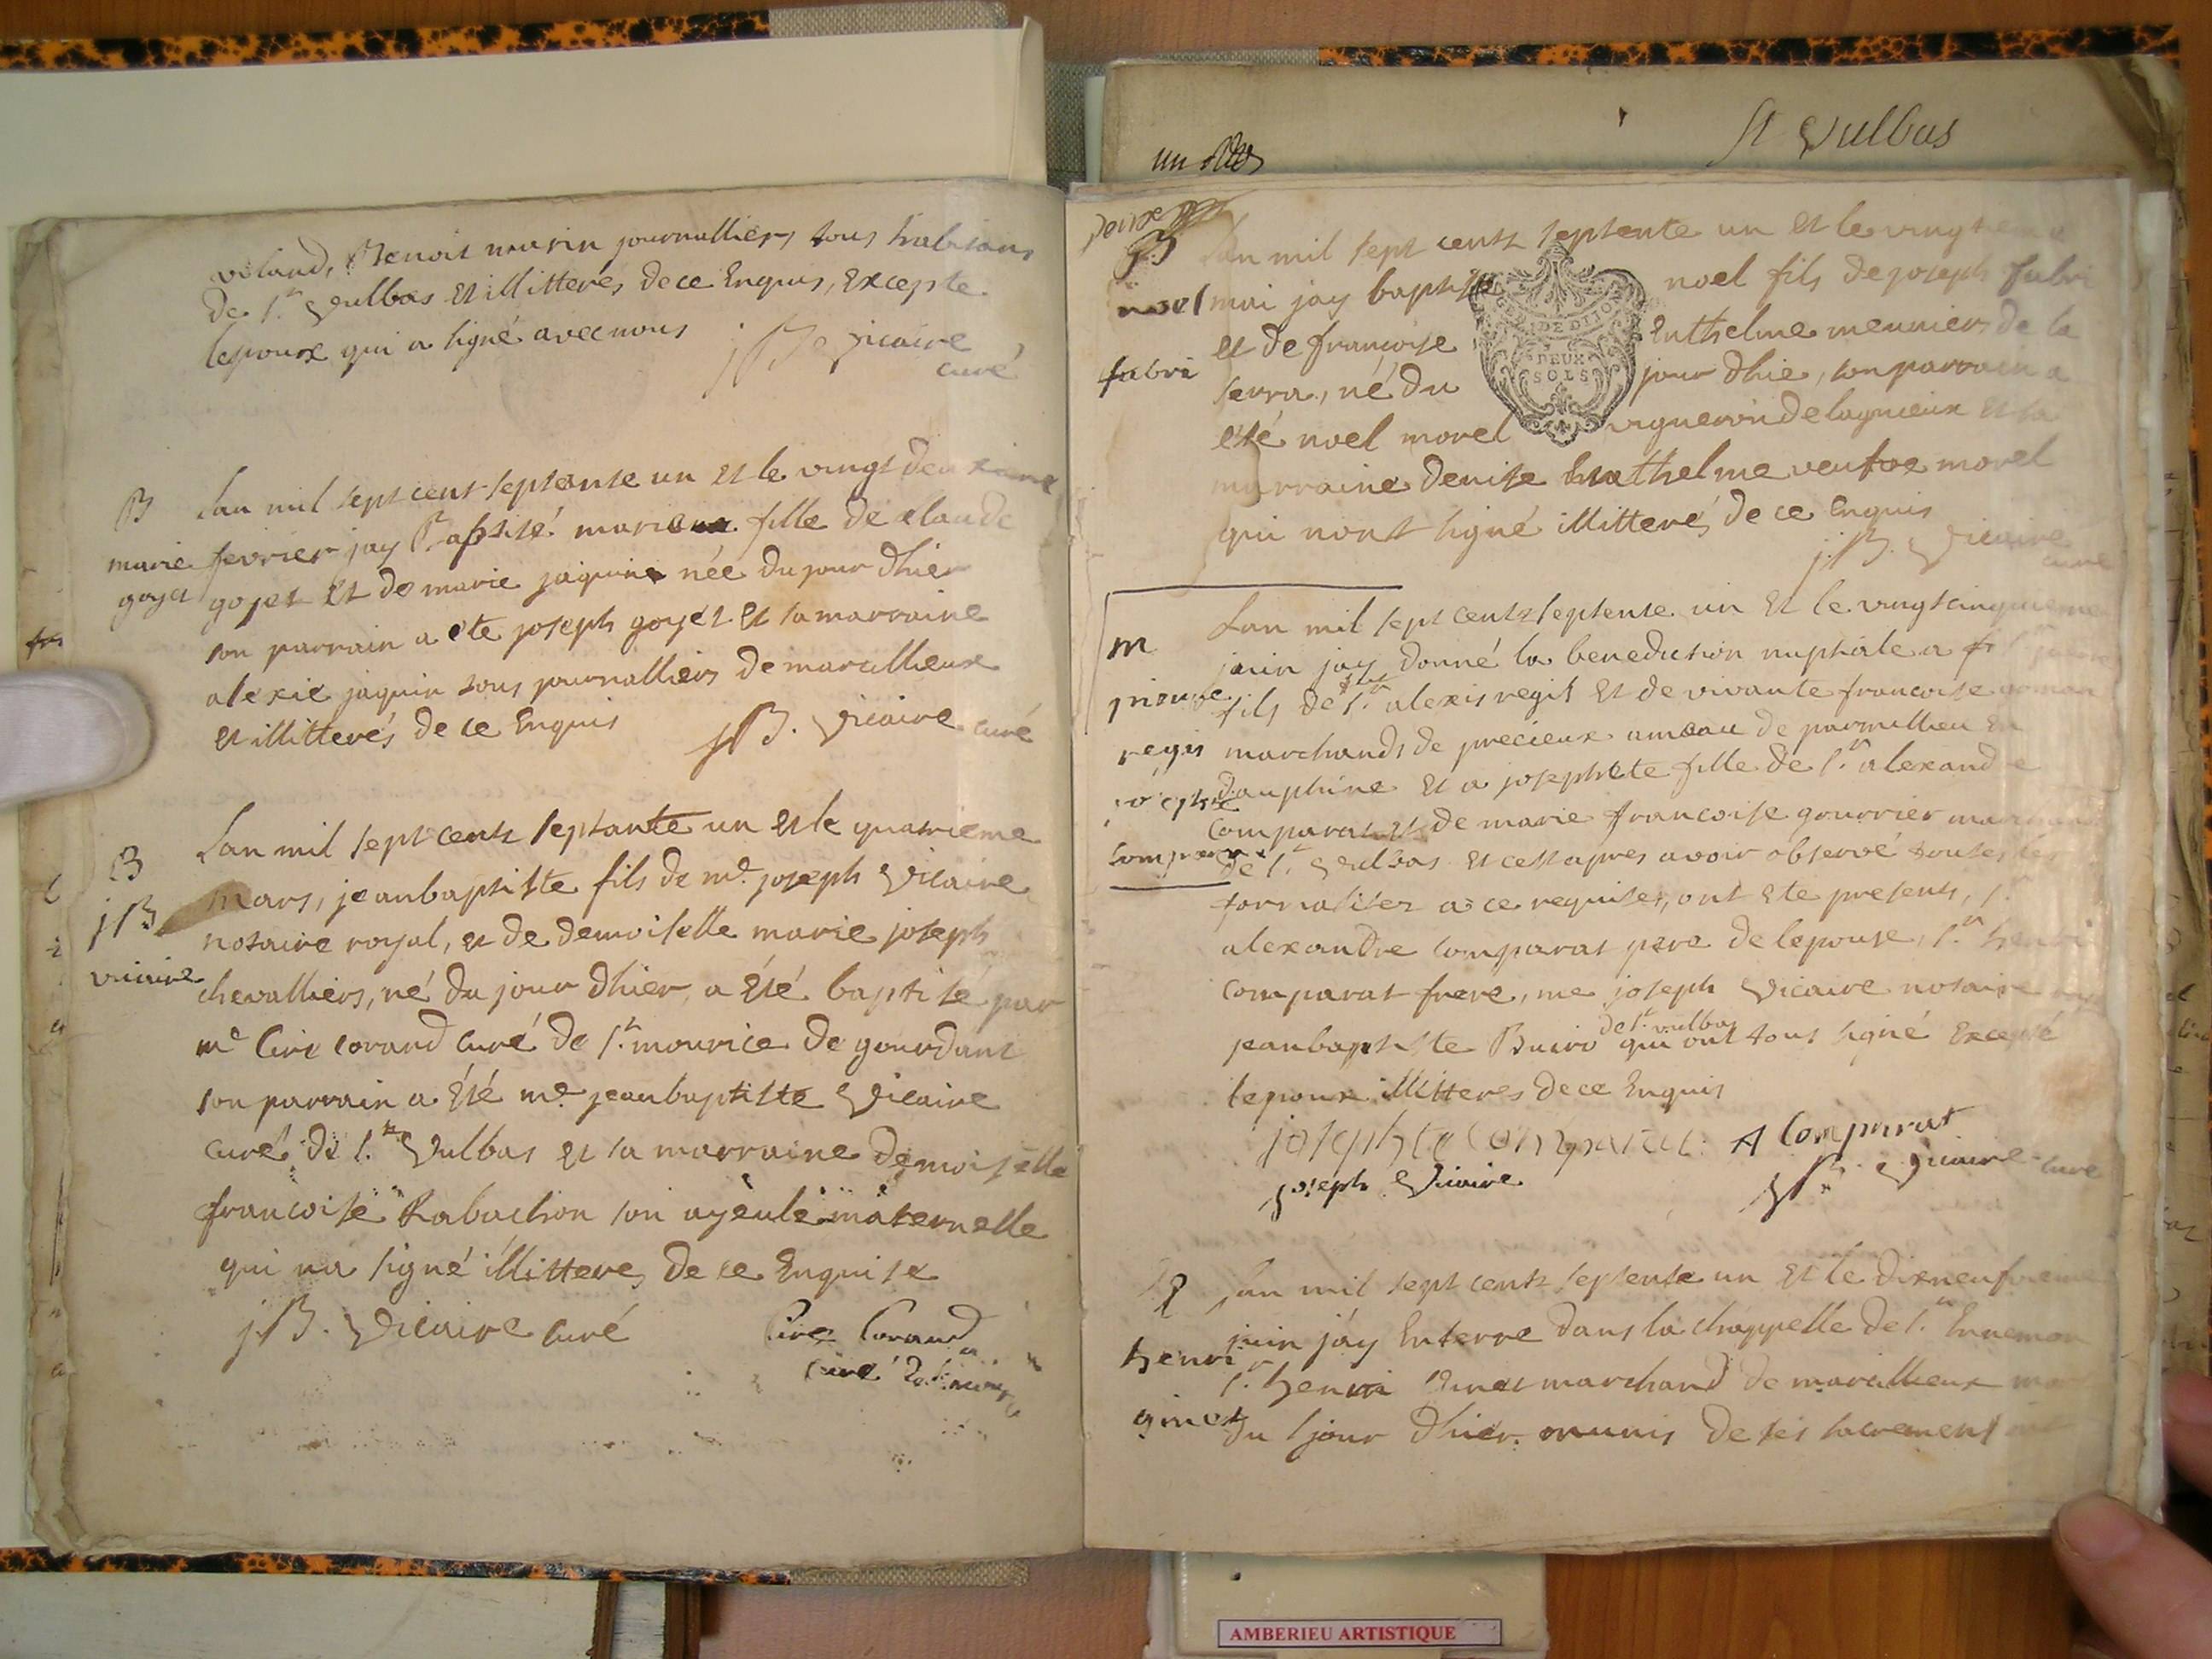 St Vulbas
voland, Benoit marin journalliers tous habitans
de St Vulbas et illitterés de ce Enquis, Excepte
lepoux qui a signé avec nous jB Vicaire
curé
B
marie
goyet
Lan mil sept cent septante un et le vingt deuxieme
fevrier jay Baptisé marie fille de claude
goyet et de marie jaquin née du jour dhier
son parrain a ete joseph goyet et sa marraine
alexie jaquin tous journalliers de marcillieux
et illitterés de ce Enquis jB. Vicaire curé
B
jB
vicaire
Lan mil sept cents septante un et le quatrieme
mars, jeanbaptiste fils de me joseph Vicaire
notaire royal, et de demoiselle marie joseph
chevalliers, né du jour dhier, a été baptisé par
me Cire corand curé de St mourice de gourdans
son parrain a été me jeanbaptiste Vicaire
curé de St Vulbas et sa marraine demoiselle
francoise Rabachon son ayeule maternelle
qui na signé illitteré de ce Enquise
jB. Vicaire curé Cire Corand
curé
B
noel
fabri
Lan mil sept cents septente un et le vingt
mai jay baptisé noel fils de joseph fabri
et de francoise Enthelme meuniers de la
serra, né du jour dhie, son parrain a
été noel morel vigneron de lagnieux et sa
marraine denise Enthelme veufve morel
qui nont signé illitteré de ce Enquis
j.B. Vicaire
curé
GEN. DE DIJON
DEUX
SOLS
m
regis
josephte
comparat
Lan mil sept cents septente un et le vingtcinquieme
juin jay donné la benediction nuptiale a
fils de St alexis regis et de vivante francoise
marchands de precieux ameau de parmillieu en
dauphine et a josephte fille de Sr alexandre
Comparat et de marie francoise gourrier
de St Vulbas et cest apres avoir observé toutes les
formalitez a ce requises, ont ete presents, Sr
alexandre comparat pere de lepouse, Sr henri
comparat frere, me joseph Vicaire notaire
de St vulbas
jeanbaptiste Buiro qui ont tous signé Excepté
lepoux illitteres de ce Enquis
josephte comparat A Comparat
joseph Vicaire jB. Vicaire curé
henri
ginet
Lan mil sept cents septente un et le dixneufieme
juin jay Enterre dans la chappelle de St Ennemon
Sr henri Ginet marchand de marcillieux
du jour dhier munis de ses sacrements
AMBERIEU ARTISTIQUE